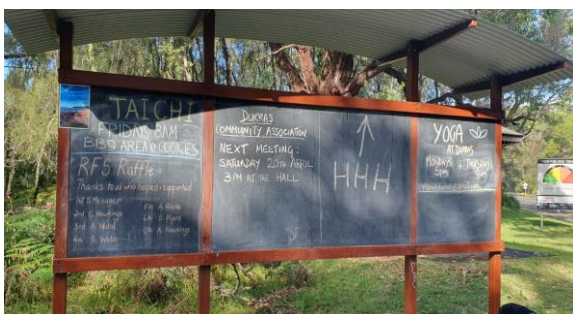 TAICHI
FRIDAY 8AM
BBQ AREA @ COOKIES
RFS Raffle
Thanks to all who helped + supported
1st S Menager
2nd C Hawkings
3rd A Vidal
4th S. Wells
6th D. Myers
7th A Hawkings
DURRAS
COMMUNITY ASSOCIATION
NEXT MEETING:
SATURDAY 20TH APRIL
3PM AT THE HALL
HHH
YOGA
AT DURRAS
MONDAYS + THURSDAYS
5PM 9AM